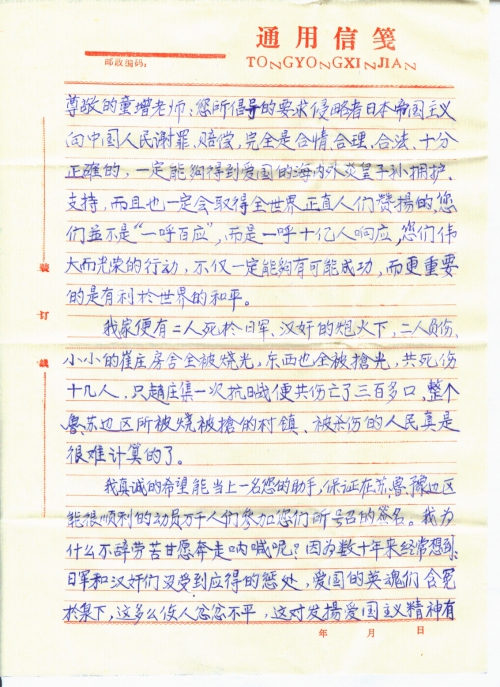 通用信笺
邮政编码:
TONGYONGXINJIAN
尊敬的童增老师:您所倡导的要求侵略者日本帝国主义
向中国人民谢罪、赔偿,完全是合情、合理、合法、十分
正確的,一定能夠得到爱国的海内外炎皇子孙拥护、
支持,而且也一定会取得全世界正直人们赞揚的,您
们並不是“一呼百应”,而是一呼十亿人响应,您们伟
大而光荣的行动,不仅一定能夠有可能成功,而更重要
的是有利於世界的和平。
我家便有二人死於日军、汉奸的炮火下,二人负伤,
小小的崔庄房舍全被烧光,东西也全被搶光,共死伤
十几人,只趙庄集一次抗日战便共伤亡了三百多口,整个
魯、苏边区所被烧被搶的村镇、被杀伤的人民真是
很难计算的了。
我真诚的希望能当上一名您的助手,保证在苏、魯、豫边区
能很顺利的动员万千人们参加您们所号召的签名。我为
什么不辞劳苦甘愿奔走呐喊呢?因为数十年来经常想到:
日軍和汉奸们没受到应得的惩处,爱国的英魂们含冤
於泉下,这多么使人忿忿不平,这对发揚爱国主义精神有
装
订
线
年 月 日